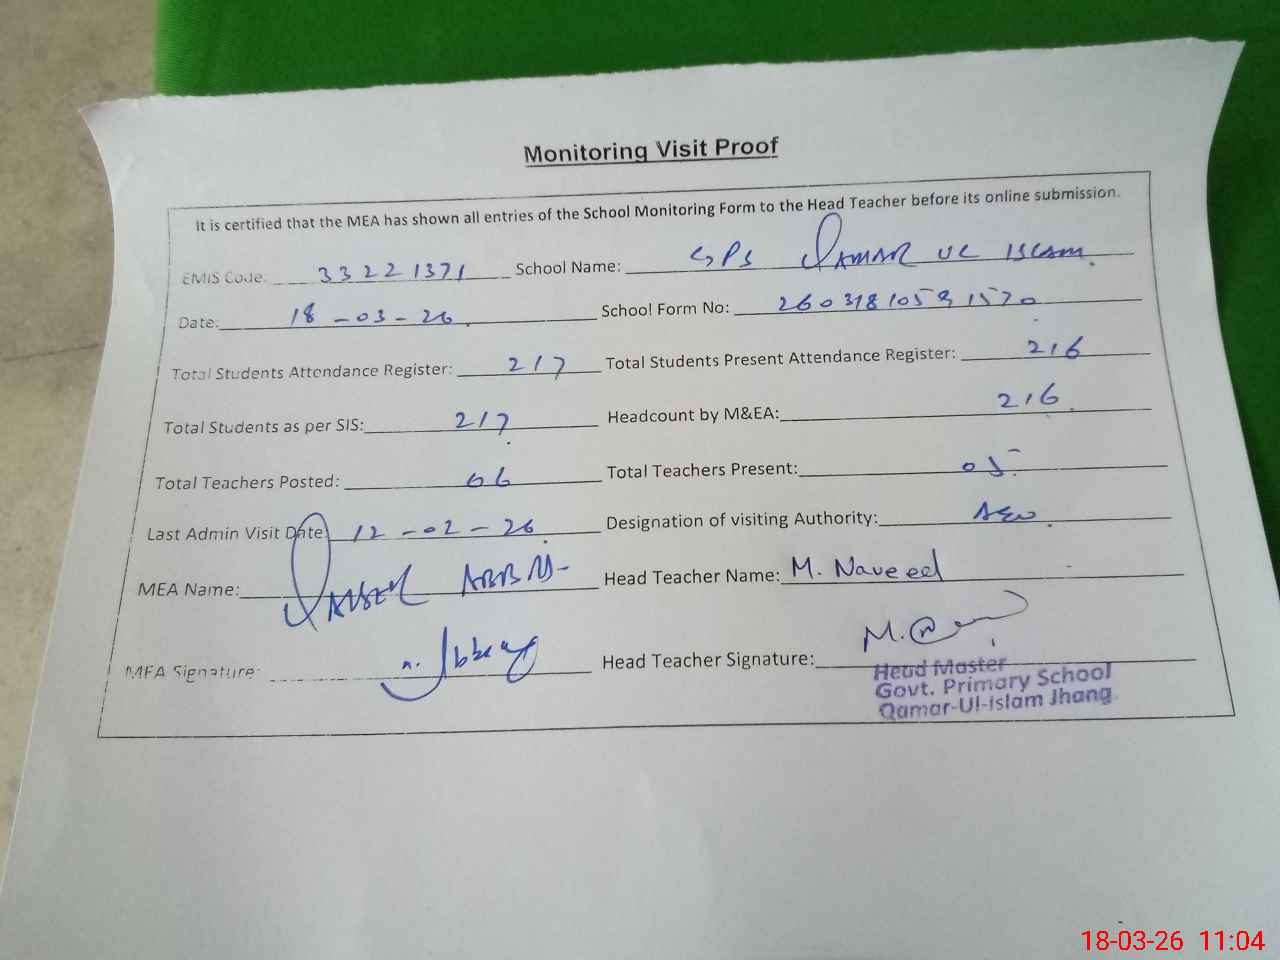 Monitoring Visit Proof
It is certified that the MEA has shown all entries of the School Monitoring Form to the Head Teacher before its online submission.
EMIS Code: 33221371 School Name: GPS QAMAR UL ISLAM
Date: 18-03-26 School Form No:
Total Students Attendance Register: 217 Total Students Present Attendance Register: 216
Total Students as per SIS: 217 Headcount by M&EA: 216
Total Teachers Posted: 06 Total Teachers Present: 05
Last Admin Visit Date: 12-02-26 Designation of visiting Authority: AEO
MEA Name: ABBAS Head Teacher Name: M. Naveed
MEA Signature: Head Teacher Signature:
Head Master
Govt. Primary School
Qamar-Ul-Islam Jhang.
18-03-26 11:04